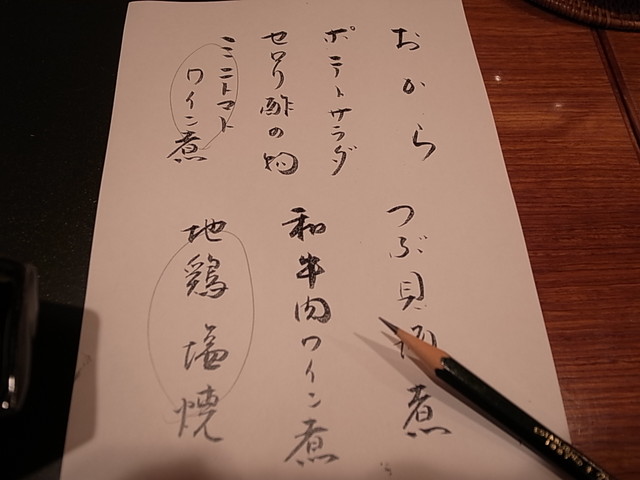 おから
ポテトサラダ
セロリ酢の物
ミニトマト
ワイン煮
つぶ貝 煮
和牛肉ワイン煮
地鶏塩焼